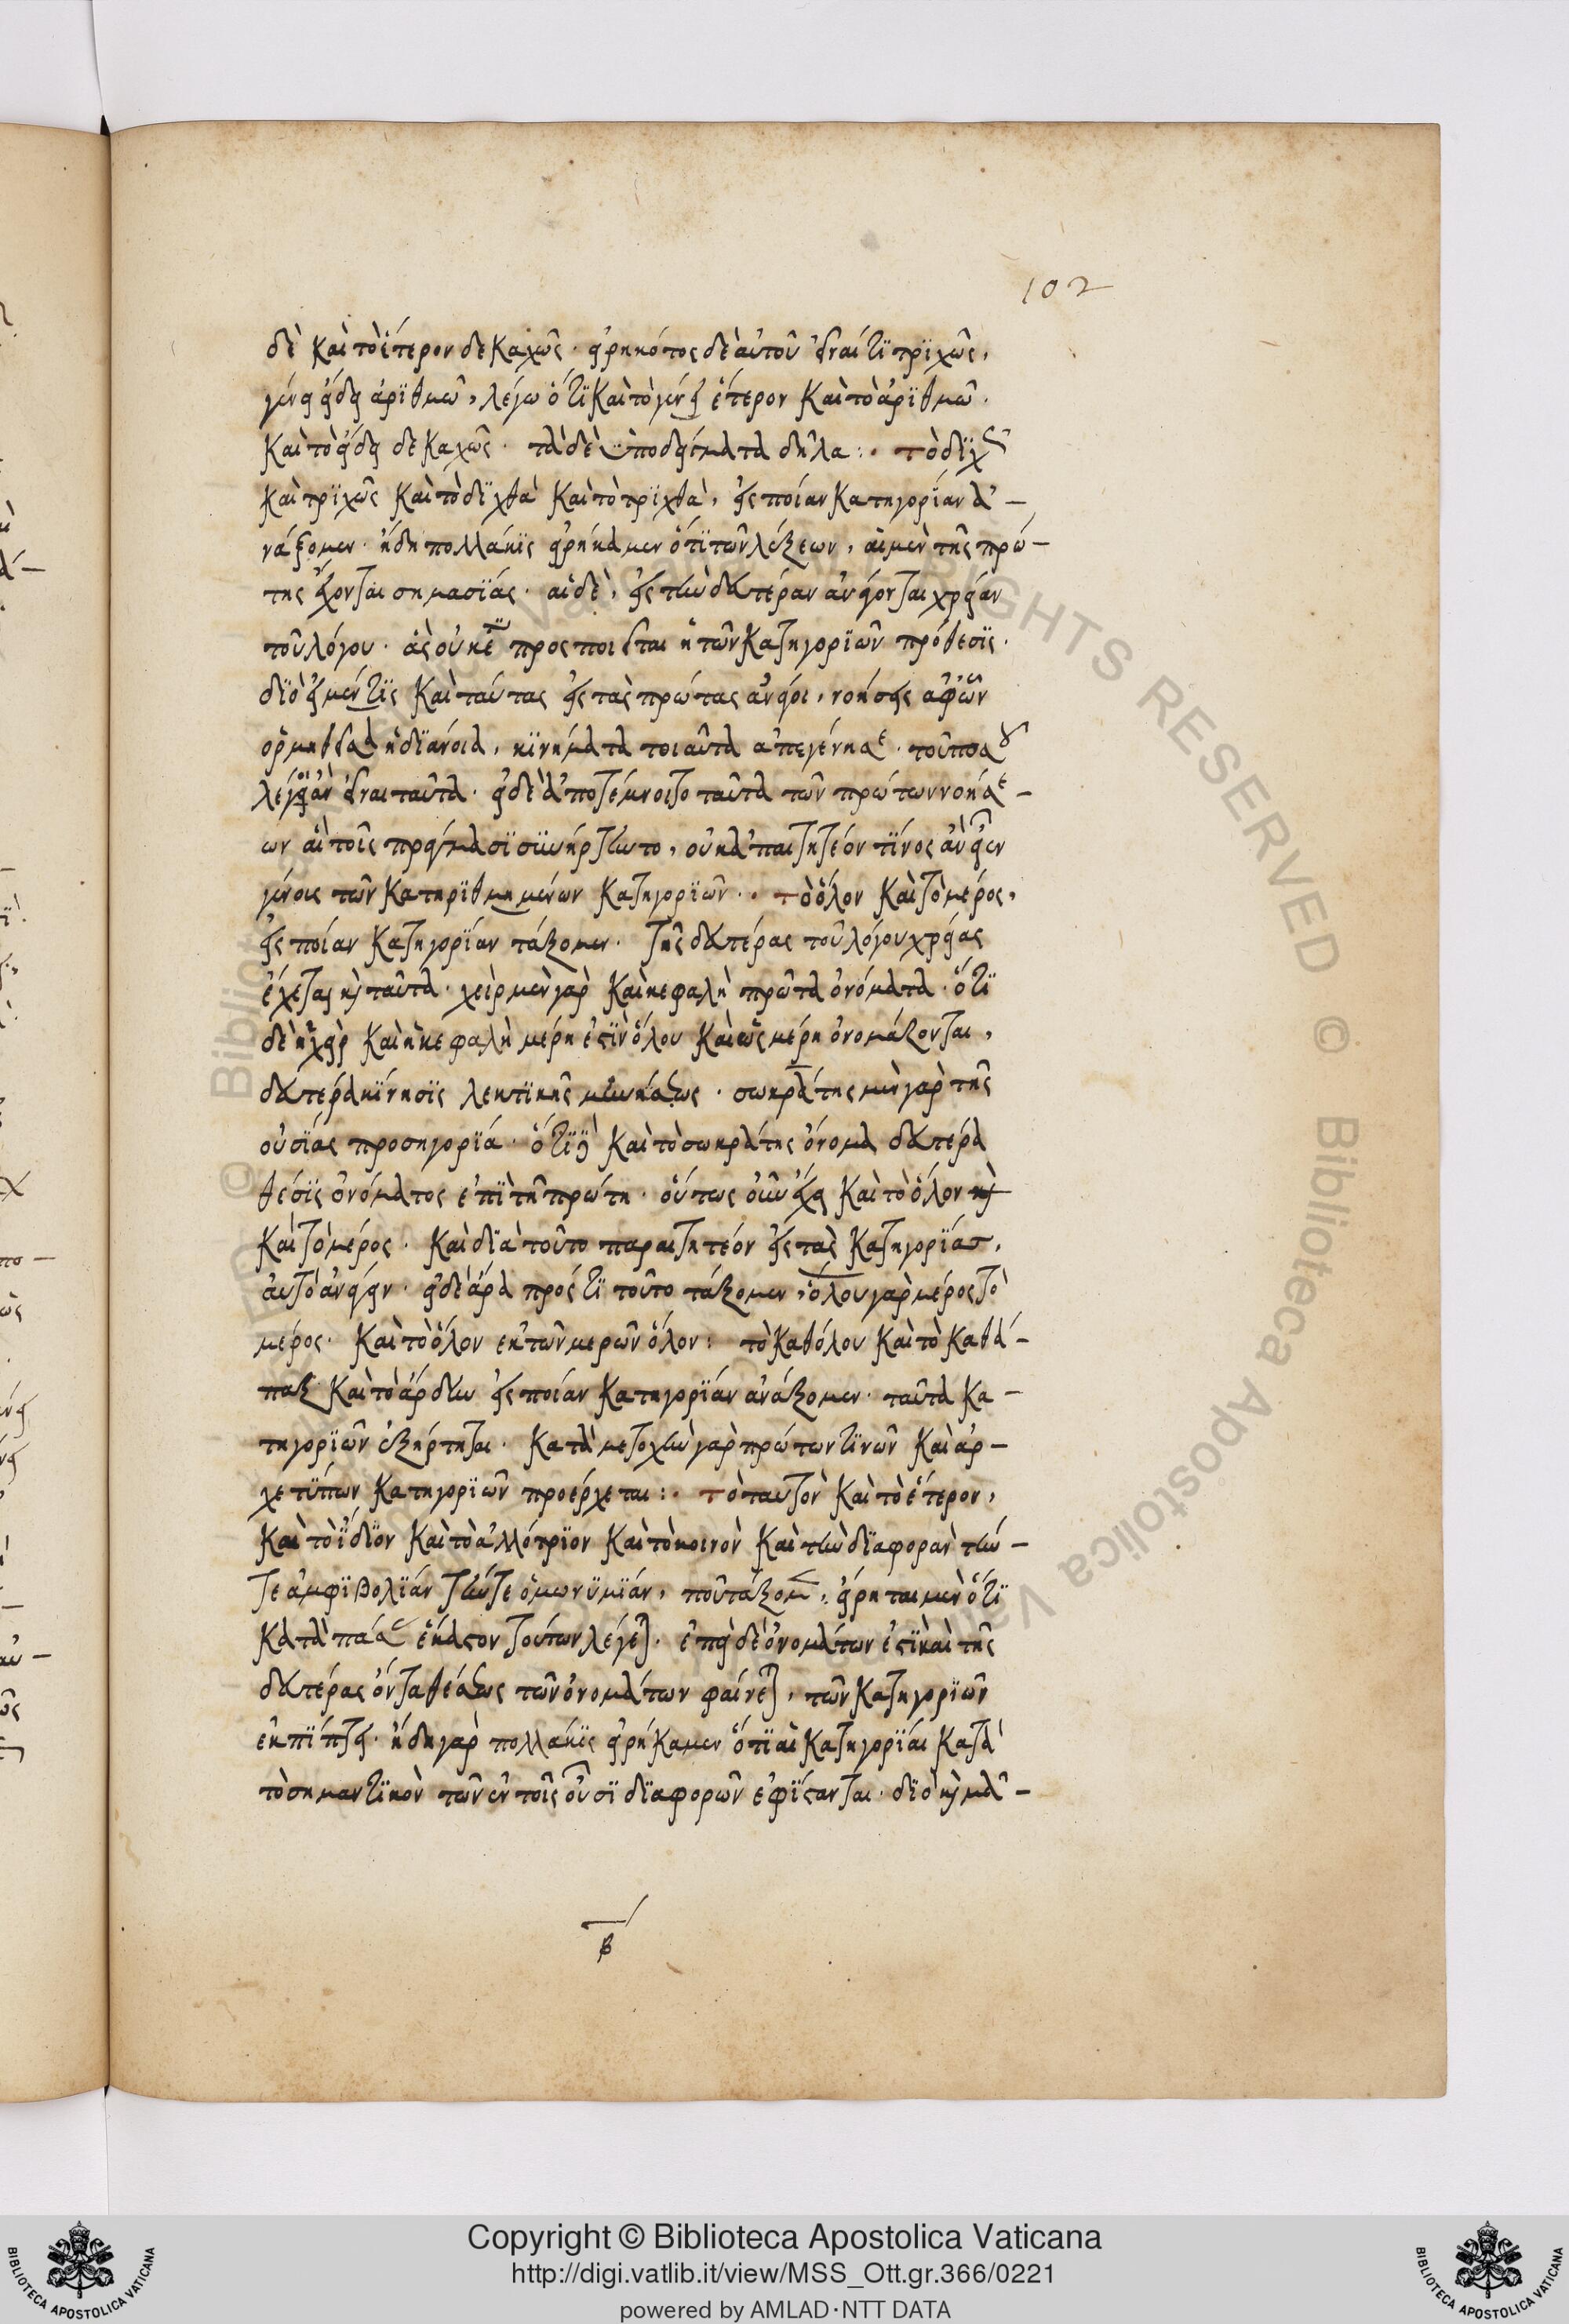 102
δὲ καὶ τὸ ἕτερον δεκαχῶς· εἰρηκότος δὲ αὐτοῦ εἶναί τι τριχῶς,
γένει εἴδει ἀριθμῶ, λέγω ὅτι καὶ τὸ γένει ἕτερον καὶ τὸ ἀριθμῶ.
καὶ τὸ εἴδει δεκαχῶς· τὰ δὲ ὑποδείγματα δῆλα:· τὸ διχῶς
καὶ τριχῶς καὶ τὸ διχθὰ καὶ τὸ τριχθὰ, εἰς ποίαν κατηγορίαν ἀ-
νάξομεν· ἤδη πολλάκις εἰρήκαμεν ὅτι τῶν λέξεων, αἱ μὲν τῆς πρώ-
της ἔχονται σημασίας· αἱ δὲ, εἰς τὴν δευτέραν ἀνάγονται χρείαν
τοῦ λόγου· ἃς οὐκέτι προσποιεῖται ἡ τῶν κατηγοριῶν πρόθεσις·
διὸ εἰ μέν τις καὶ ταύτας εἰς τὰς πρώτας ἀνάγοι, νοήσεις ἀφ' ὧν
ὁρμηθεῖσα ἡ διάνοια, κινήματα τοιαῦτα ἀπεγέννησε· τοῦ ποσοῦ
λέγοι ἂν εἶναι ταῦτα· εἰ δὲ ἀποτέμνοιτο ταῦτα τῶν πρώτων νοήσε-
ων αἳ τοῖς πράγμασι συνήρτηντο, οὐκ ἀπαιτητέον τίνος ἂν εἶεν
γένους τῶν κατηριθμημένων κατηγοριῶν·· τὸ ὅλον καὶ τὸ μέρος,
εἰς ποίαν κατηγορίαν τάξομεν· τῆς δευτέρας τοῦ λόγου χρείας
ἔχεται καὶ ταῦτα· χεὶρ μὲν γὰρ καὶ κεφαλὴ πρῶτα ὀνόματα· ὅτι
δὲ ἡ χεὶρ καὶ ἡ κεφαλὴ μέρη ἐστὶν ὅλου καὶ ὡς μέρη ὀνομάζονται,
δευτέρα κίνησις λεκτικῆς μιμήσεως· σωκράτης μὲν γὰρ τῆς
οὐσίας προσηγορία· ὅτι δὲ καὶ τὸ σωκράτης ὄνομα δευτέρα
θέσις ὀνόματος ἐπὶ τῆ πρώτη· οὕτως οὖν ἔχει καὶ τὸ ὅλον καὶ
καὶ τὸ μέρος· καὶ διὰ τοῦτο παραιτητέον εἰς τὰς κατηγορίας,
αὐτὸ ἀνάγειν· εἰ δὲ ἄρα πρός τι τοῦτο τάξομεν, ὅλου γὰρ μέρος τὸ
μέρος· καὶ τὸ ὅλον ἐκ τῶν μερῶν ὅλον: τὸ καθόλου καὶ τὸ καθά-
παξ καὶ τὸ ἄρδην εἰς ποίαν κατηγορίαν ἀνάξομεν· ταῦτα κα-
τηγοριῶν ἐξήρτηται· κατὰ μετοχὴν γὰρ πρώτων τινῶν καὶ ἀρ-
χετύπων κατηγοριῶν προέρχεται:· τὸ ταυτὸν καὶ τὸ ἕτερον,
καὶ τὸ ἴδιον καὶ τὸ ἀλλότριον καὶ τὸ κοινὸν καὶ τὴν διαφορὰν τήν-
τε ἀμφιβολίαν τήν τε ὁμωνυμίαν, ποῦ τάξομεν, εἴρηται μὲν ὅτι
κατὰ πάσας ἕκαστον τούτων λέγεται· ἐπεὶ δὲ ὀνομάτων ἐστὶ καὶ τῆς
δευτέρας ὄντα θέσεως τῶν ὀνομάτων φαίνεται, τῶν κατηγοριῶν
ἐκπίπτει· ἤδη γὰρ πολλάκις εἰρήκαμεν ὅτι αἱ κατηγορίαι κατὰ
τὸ σημαντικὸν τῶν ἐν τοῖς οὖσι διαφορῶν ἐφίστανται· διὸ καὶ μᾶ-
β